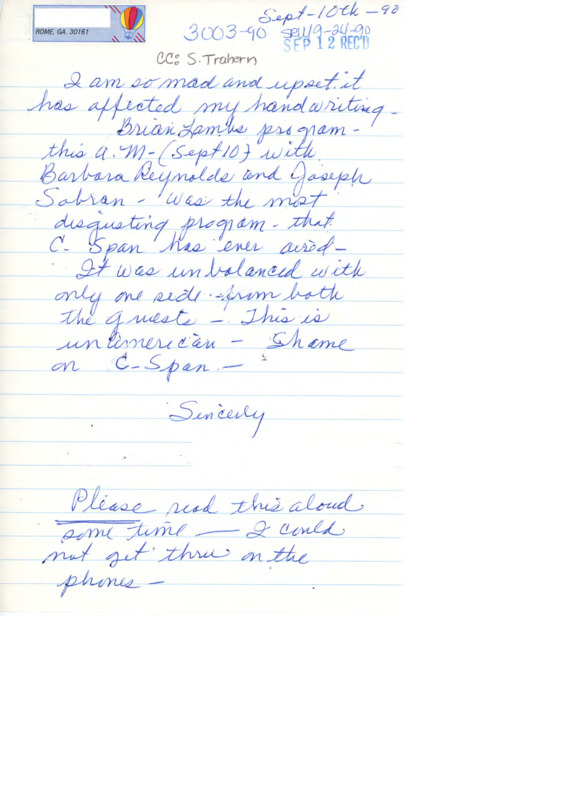 Sept-10th-90
ROME, GA. 30161
3003-90 9-24-90
SEP 12 REC'D
CC: S. Trahern
I am so mad and upset it
has affected my handwriting -
Brian Lambs program -
this A.M-(Sept 10) with
Barbara Reynolds and Joseph
Sobran - was the most
disgusting program - that
C-Span has ever aired -
It was unbalanced with
only one side - from both
the guests - This is
unAmerican - Shame
on C-Span -
Sincerly
Please read this aloud
some time — I could
not get thru on the
phones -